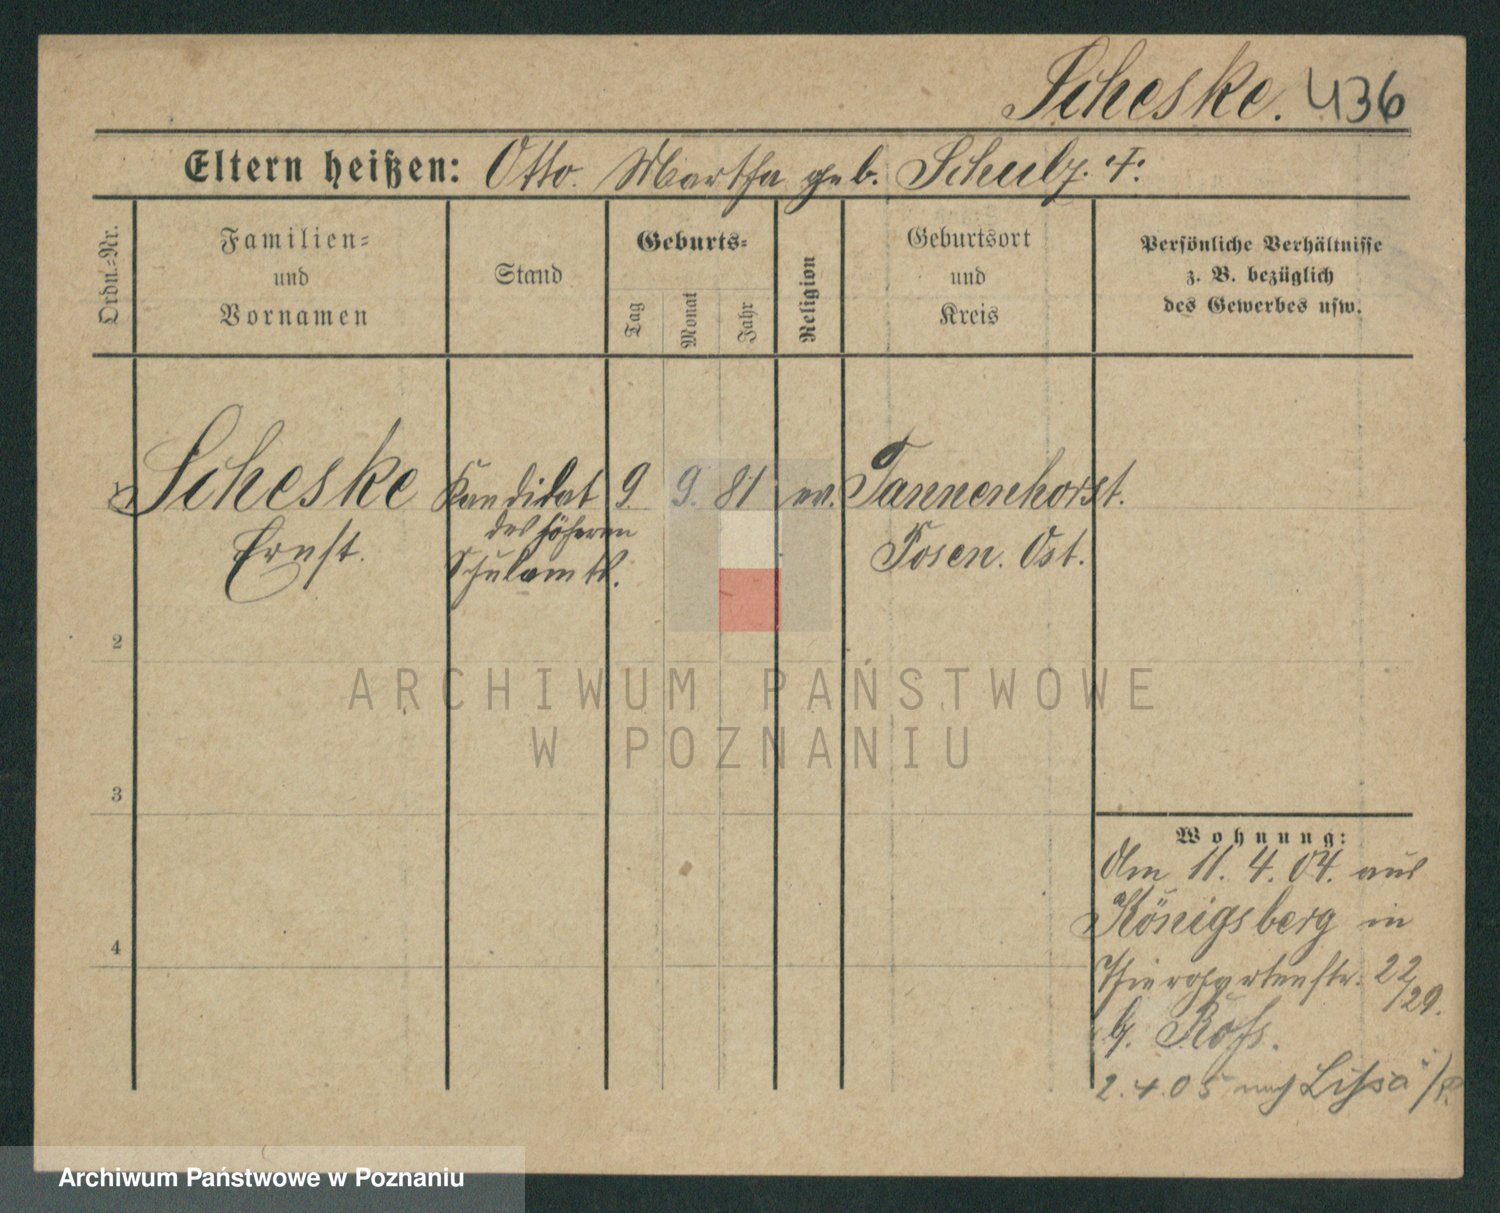 Scheske. 436
Eltern heißen: Otto. Martha geb. Schulz. †.
Ordn.-Nr.
Familien-
und
Vornamen
Stand
Geburts-
Tag
Monat
Jahr
Religion
Geburtsort
und
Kreis
Persönliche Verhältnisse
z. B. bezüglich
des Gewerbes usw.
Scheske Kandidat 9 9. 81 ev. Tannenhorst.
des höheren
Ernst. Schulamts. Posen. Ost.
2
3
4
ARCHIWUM PAŃSTWOWE
W POZNANIU
Wohnung:
Am 11. 4. 04. aus
Königsberg in
Thiergartenstr. 22
/29.
b. Ross.
2.4.05 nach Lissa i/P.
Archiwum Państwowe w Poznaniu